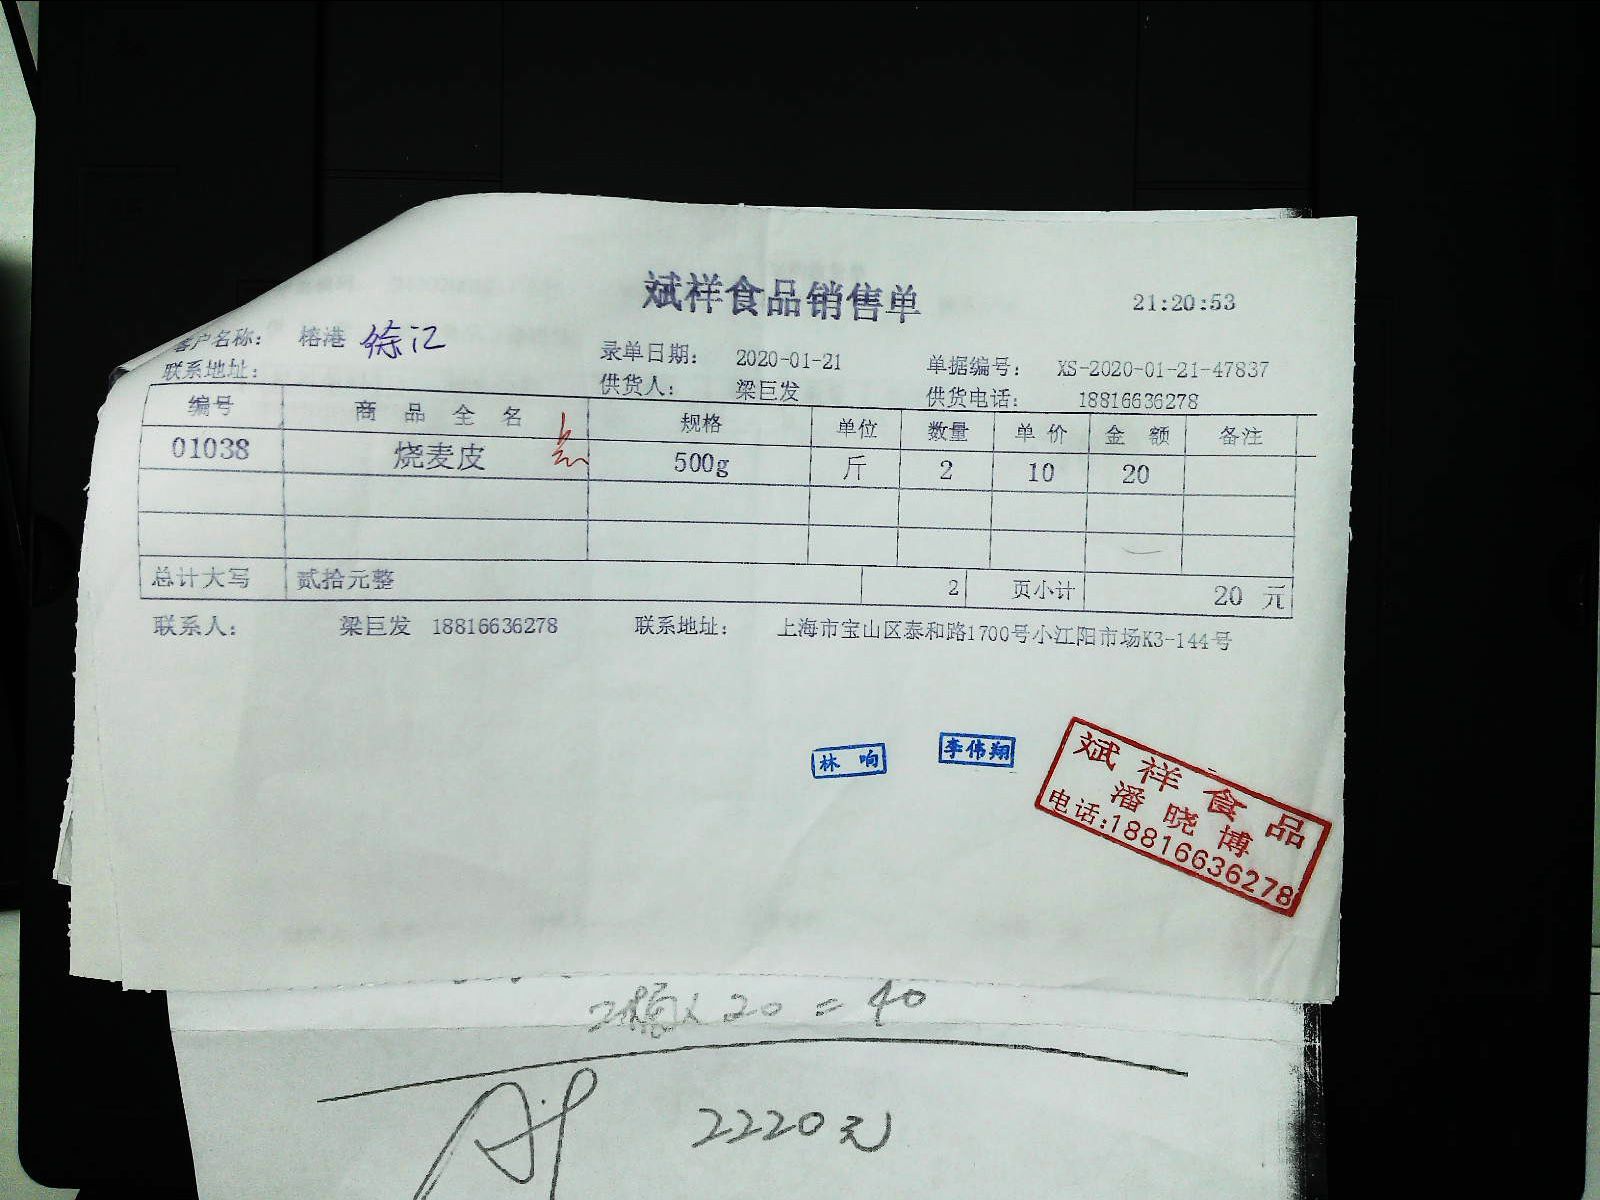 斌祥食品销售单 21:20:53
客户名称： 榕港 徐汇 录单日期： 2020-01-21 单据编号： XS-2020-01-21-47837
联系地址： 供货人： 梁巨发 供货电话： 18816636278
编号 商品全名 规格 单位 数量 单价 金额 备注
01038 烧麦皮 500g 斤 2 10 20
总计大写 贰拾元整 2 页小计 20 元
联系人： 梁巨发 18816636278 联系地址： 上海市宝山区泰和路1700号小江阳市场K3-144号
林响 李伟翔
斌祥食品
潘晓博
电话:18816636278
20 = 40
2220元